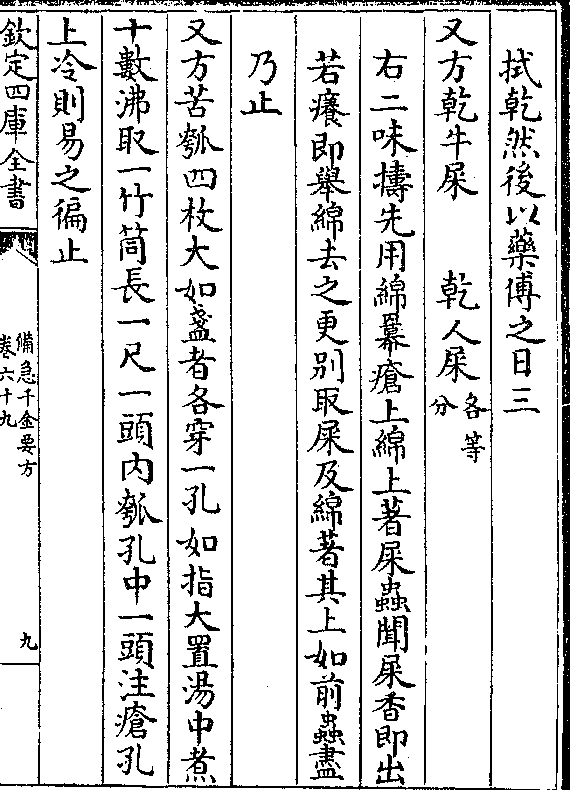 拭乾然後以藥傅之日三
又方乾牛屎 乾人屎各等分
右二味擣先用綿羃瘡上綿上著屎蟲聞屎香即出
若癢即舉綿去之更別取屎及綿著其上如前蟲盡
乃止
又方苦瓠四枚大如盞者各穿一孔如指大置湯中煮
十數沸取一竹筒長一尺一頭内瓠孔中一頭注瘡孔
上冷則易之徧止
欽定四庫全書
備急千金要方
卷六十九
九